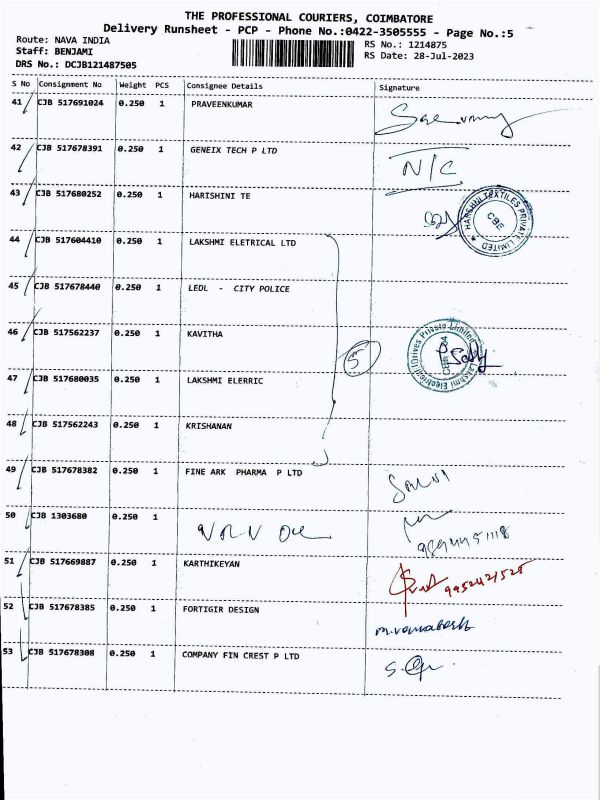 THE PROFESSIONAL COURIERS, COIMBATORE
Delivery Runsheet - PCP - Phone No.:0422-3505555 - Page No.:5
Route: NAVA INDIA
RS No.: 1214875
Staff: BENJAMI
RS Date: 28-Jul-2023
DRS No.: DCJB121487505
S No Consignment No Weight PCS Consignee Details Signature
41 CJB 517691024 0.250 1 PRAVEENKUMAR
42 CJB 517678391 0.250 1 GENEIX TECH P LTD N/C
43 CJB 517680252 0.250 1 HARISHINI TE
HARSHNI TEXTILES PRIVATE LIMITED
CBE
44 CJB 517604410 0.250 1 LAKSHMI ELETRICAL LTD
45 CJB 517678440 0.250 1 LEDL - CITY POLICE
46 CJB 517562237 0.250 1 KAVITHA
5
Lakshmi Electrical Drives Private Limited
47 CJB 517680035 0.250 1 LAKSHMI ELERRIC
48 CJB 517562243 0.250 1 KRISHANAN
49 CJB 517678382 0.250 1 FINE ARK PHARMA P LTD
50 CJB 1303680 0.250 1
51 CJB 517669887 0.250 1 KARTHIKEYAN
52 CJB 517678385 0.250 1 FORTIGIR DESIGN
53 CJB 517678308 0.250 1 COMPANY FIN CREST P LTD